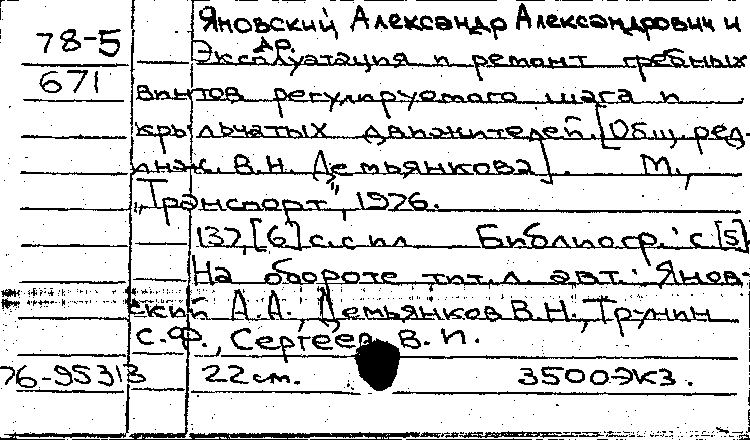 78-5
671
Яновский Александр Александрович и
др.
Эксплуатация и ремонт гребных
винтов регулируемого шага и
крыльчатых движителей. [Общ. ред.
инж. В.Н. Демьянкова]. М.,
„Транспорт", 1976.
137, [6] с. с ил Библиогр.: с [5]
На обороте тит. л. авт.: Янов
ский А.А., Демьянков В.Н., Трунин
С.Ф., Сергеев В.П.
76-95313 22 см. 3500экз.